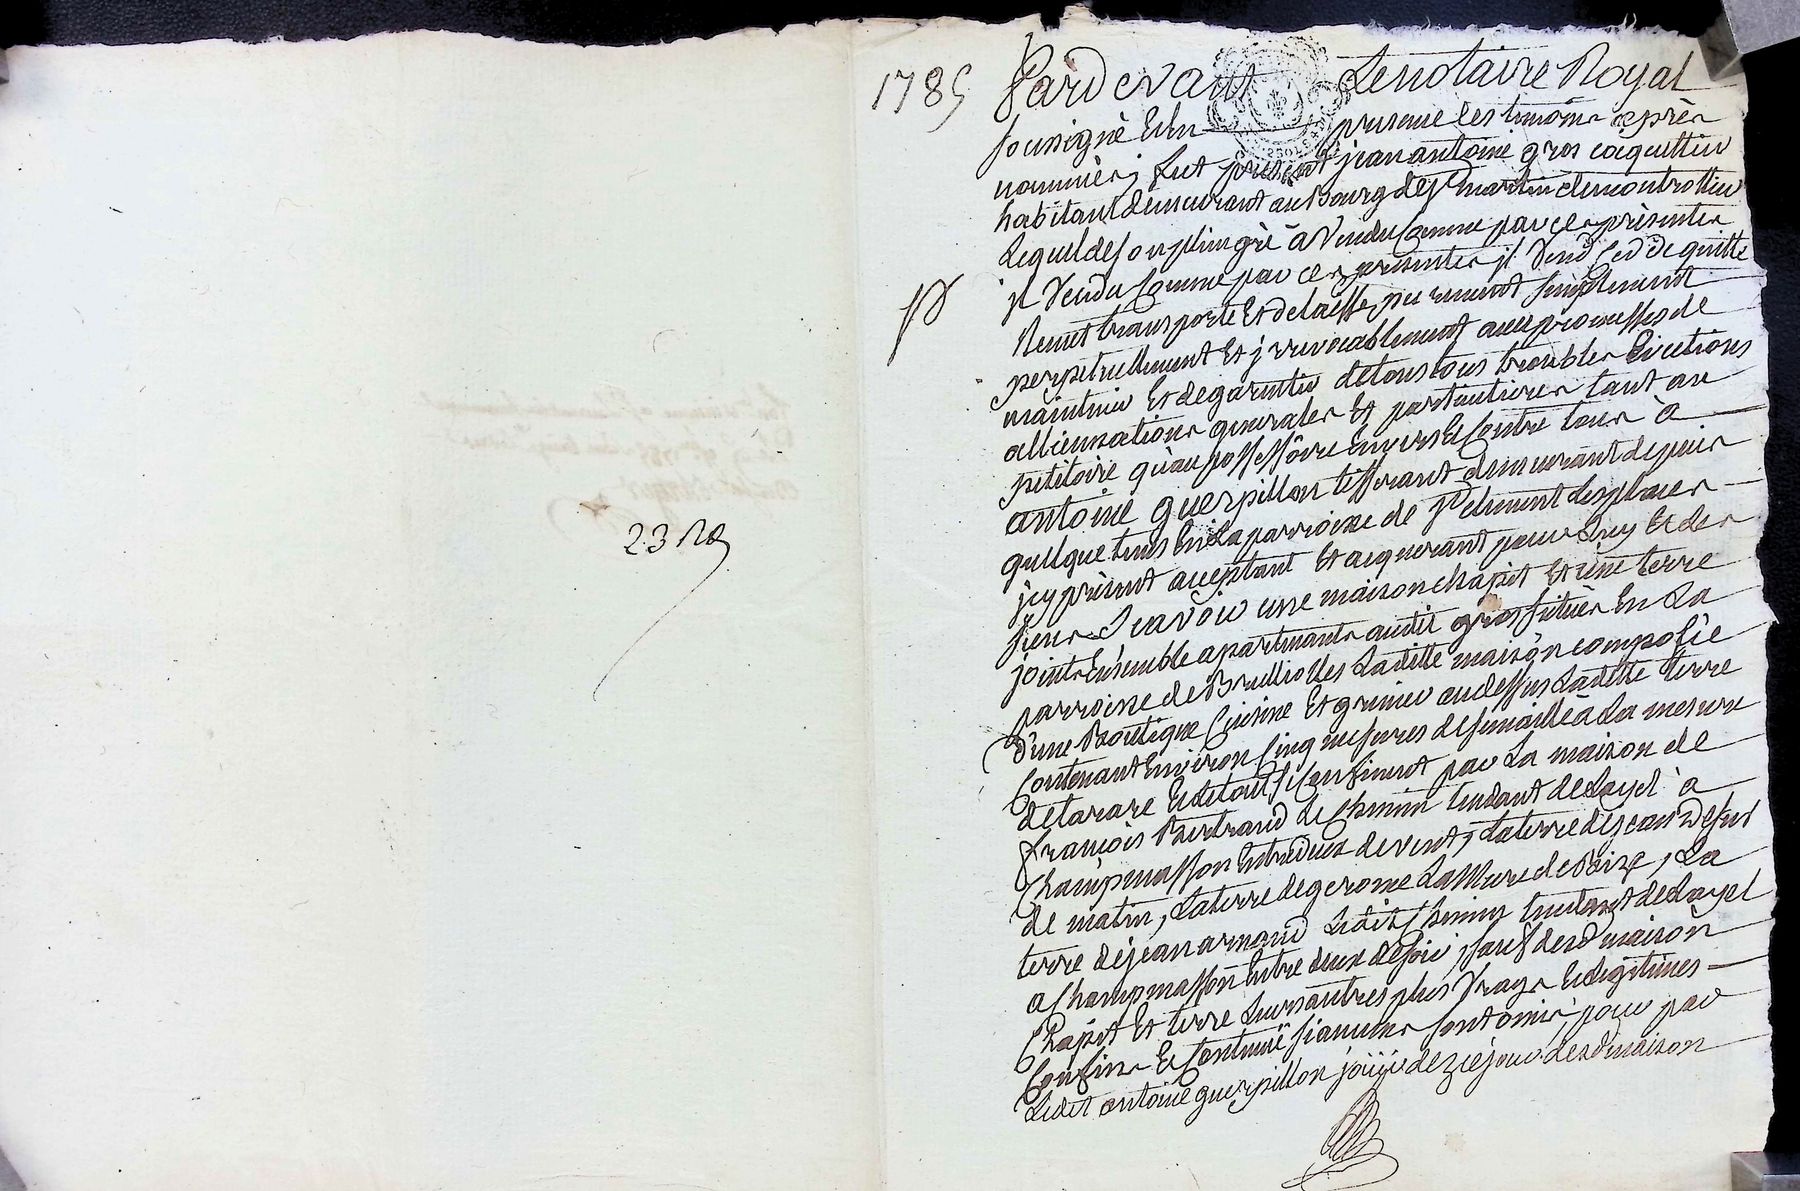 23 Rd
1785
Pardevant Le notaire Royal
soussigné Et En presence Les temoins après
nommèes, fut present jean antoine gros coiquettier
habitant demeurant au Bourg de St martin de montrottier
Lequel de son plein grè à Vendu Comme par ces prèsentes
il Vendu Comme par ces presentes il Vend Cedde quitte
Remet transporte Et delaisse purement simplement
perpetuellement Et jrrevocablement avec promesses de
maintenir Et de garentir de tous tous troubles Evictions
alliennations generales Et particulieres tant au
petitoire qu'au possessôire Envers Et Contre tous à
antoine guerpillon tisserant demeurant depuis
quelque tems En La parroisse de St clement Les places
jcy prèsent aceptant Et aquerant pour Luy Et les
siens Scavoir une maison chapit Et une terre
joints Ensemble apartenants audit gros situèes En La
parroisse de Brullioles Ladite maisòn composèe
d'une Boutique Cuisine Et grenier au dessus Ladite terre
Contenant Environ Cinq mesures de semaille à La mesure
de tarare Et Le tout se Confinent par La maison de
françois Bertrand Le Chemin tendant de Layel à
Champmasson Entre deux de vent, La terre de jean
de matin, La terre de gerome La Mure de Bize, La
terre de jean armand Ledit Chemin tendant de Layel
a Champmasson Entre deux de soir, sauf desd maisòn
Chapit Et terre Leurs autres plus Vrays Et Legitimes
Confins Et Contenuë si aucuns sont omis, pour par
Ledit antoine guerpillon joüir dez ce jour desd maison